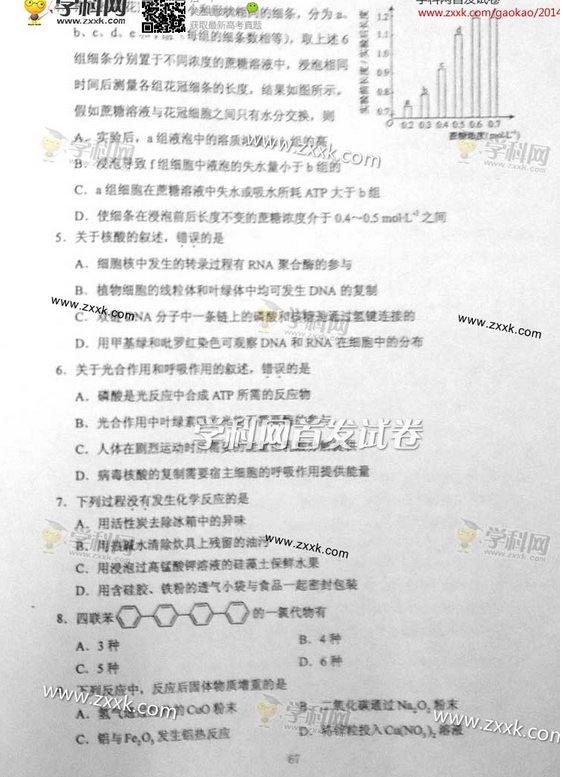 学科网首发试卷
www.zxxk.com/gaokao/2014
获取最新高考真题
的细条，分为 a、
b、c、d、e
组的细条数相等），取上述 6
组细条分别置于不同浓度的蔗糖溶液中，浸泡相同
时间后测量各组花冠细条的长度，结果如图所示。
假如蔗糖溶液与花冠细胞之间只有水分交换，则
1.2
1.1
1.0
0.9
0.8
0.7
0
0.2 0.3 0.4 0.5 0.6 0.7
a
b
c
d
e
A．实验后，a 组液泡中的溶质
组的高
B．浸泡导致 f 组细胞中液泡的失水量小于 b 组的
C．a 组细胞在蔗糖溶液中失水或吸水所耗 ATP 大于 b 组
D．使细条在浸泡前后长度不变的蔗糖浓度介于 0.4～0.5 mol·L⁻¹ 之间
5．关于核酸的叙述，错误的是
A．细胞核中发生的转录过程有 RNA 聚合酶的参与
B．植物细胞的线粒体和叶绿体中均可发生 DNA 的复制
C．双链 DNA 分子中一条链上的磷酸和核糖是通过氢键连接的
D．用甲基绿和吡罗红染色可观察 DNA 和 RNA 在细胞中的分布
6．关于光合作用和呼吸作用的叙述，错误的是
A．磷酸是光反应中合成 ATP 所需的反应物
B．光合作用中叶绿素
的参与
C．人体在剧烈运动时
D．病毒核酸的复制需要宿主细胞的呼吸作用提供能量
学科网首发试卷
7．下列过程没有发生化学反应的是
A．用活性炭去除冰箱中的异味
B．用热碱水清除炊具上残留的油污
C．用浸泡过高锰酸钾溶液的硅藻土保鲜水果
D．用含硅胶、铁粉的透气小袋与食品一起密封包装
8．四联苯
的一氯代物有
A．3 种
B．4 种
C．5 种
D．6 种
下列反应中，反应后固体物质增重的是
A．氢气通过
的 CuO 粉末
B．二氧化碳通过 Na₂O₂ 粉末
C．铝与 Fe₂O₃ 发生铝热反应
D．将锌粒投入 Cu(NO₃)₂ 溶液
67
学科网
www.zxxk.com